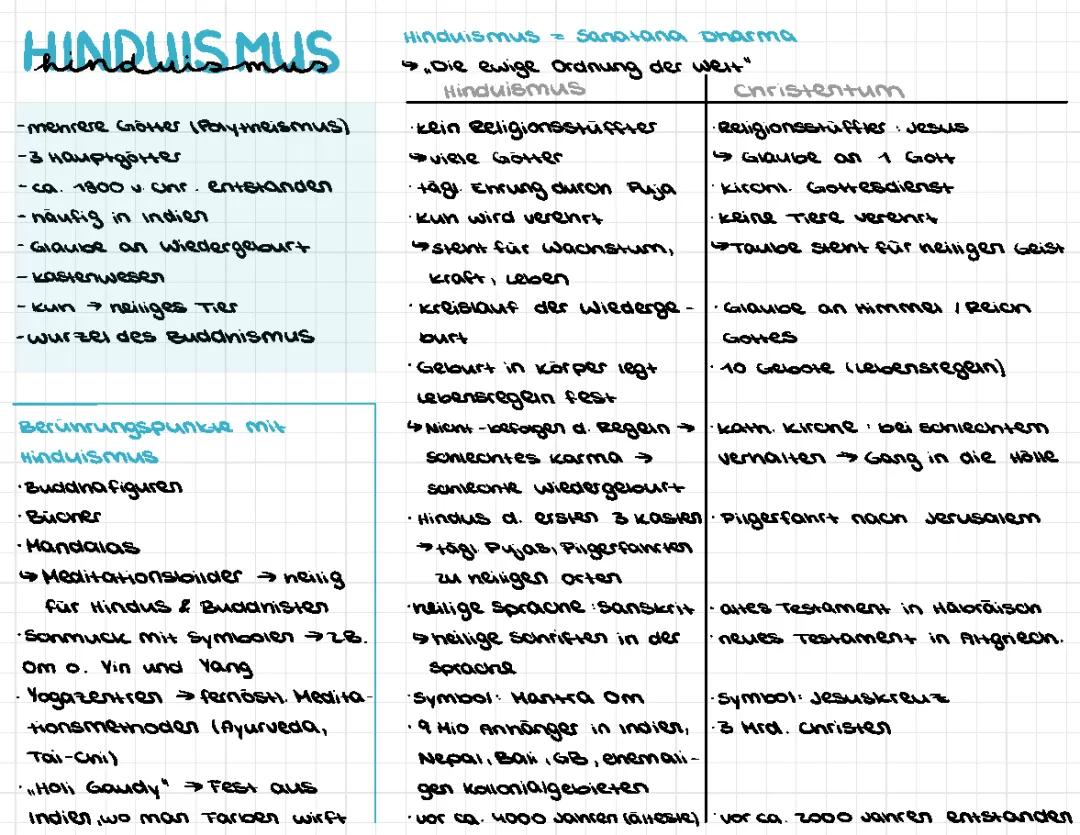 HINDUISMUS
hinduismus
- mehrere Götter (Polytheismus)
- 3 Hauptgötter
- ca. 1800 v. Chr. entstanden
- häufig in Indien
- Glaube an Wiedergeburt
- Kastenwesen
- Kuh → heiliges Tier
- Wurzel des Buddhismus
Berührungspunkte mit
Hinduismus
· Buddhafiguren
· Bücher
· Mandalas
↳ Meditationsbilder → heilig
für Hindus & Buddhisten
· Schmuck mit Symbolen → z.B.
Om o. Yin und Yang
· Yogazentren → fernöstl. Medita-
tionsmethoden (Ayurveda,
Tai-Chi)
· „Holi Gaudy" → Fest aus
Indien, wo man Farben wirft
Hinduismus = Sanatana Dharma
↳ „Die ewige Ordnung der Welt"
Hinduismus
· kein Religionsstüffter
↳ viele Götter
· tägl. Ehrung durch Puja
· Kuh wird verehrt
↳ steht für Wachstum,
Kraft, Leben
· Kreislauf der Wiederge-
burt
· Geburt in Körper legt
Lebensregeln fest
↳ Nicht-befolgen d. Regeln →
schlechtes Karma →
schlechte Wiedergeburt
· Hindus d. ersten 3 Kasten
→ tägl. Pujas, Pilgerfahrten
zu heiligen Orten
· heilige Sprache: Sanskrit
↳ heilige Schriften in der
Sprache
· Symbol: Mantra Om
· 9 Mio Anhänger in Indien,
Nepal, Bali, GB, ehemali-
gen Kollonialgebieten
· vor ca. 4000 Jahren (älteste)
Christentum
· Religionsstüffter: Jesus
↳ Glaube an 1 Gott
· kirchl. Gottesdienst
· keine Tiere verehrt
↳ Taube steht für heiligen Geist
· Glaube an Himmel / Reich
Gottes
· 10 Gebote (Lebensregeln)
· kath. Kirche: bei schlechtem
Verhalten → Gang in die Hölle
· Pilgerfahrt nach Jerusalem
· altes Testament in Häbräisch
· neues Testament in Altgriech.
· Symbol: Jesuskreuz
· 3 Mrd. Christen
· vor ca. 2000 Jahren entstanden